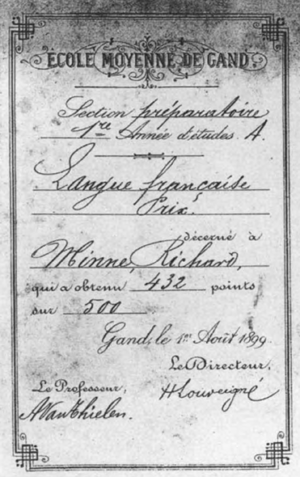 ÉCOLE MOYENNE DE GAND.
Section préparatoire
1re Année d'études A.
Langue française
Prix
décerné à
Minne, Richard,
qui a obtenu 432 points
sur 500
Gand, le 1er Août 1899
Le Directeur,
Le Professeur,
H Louveigné
A Van Thielen.